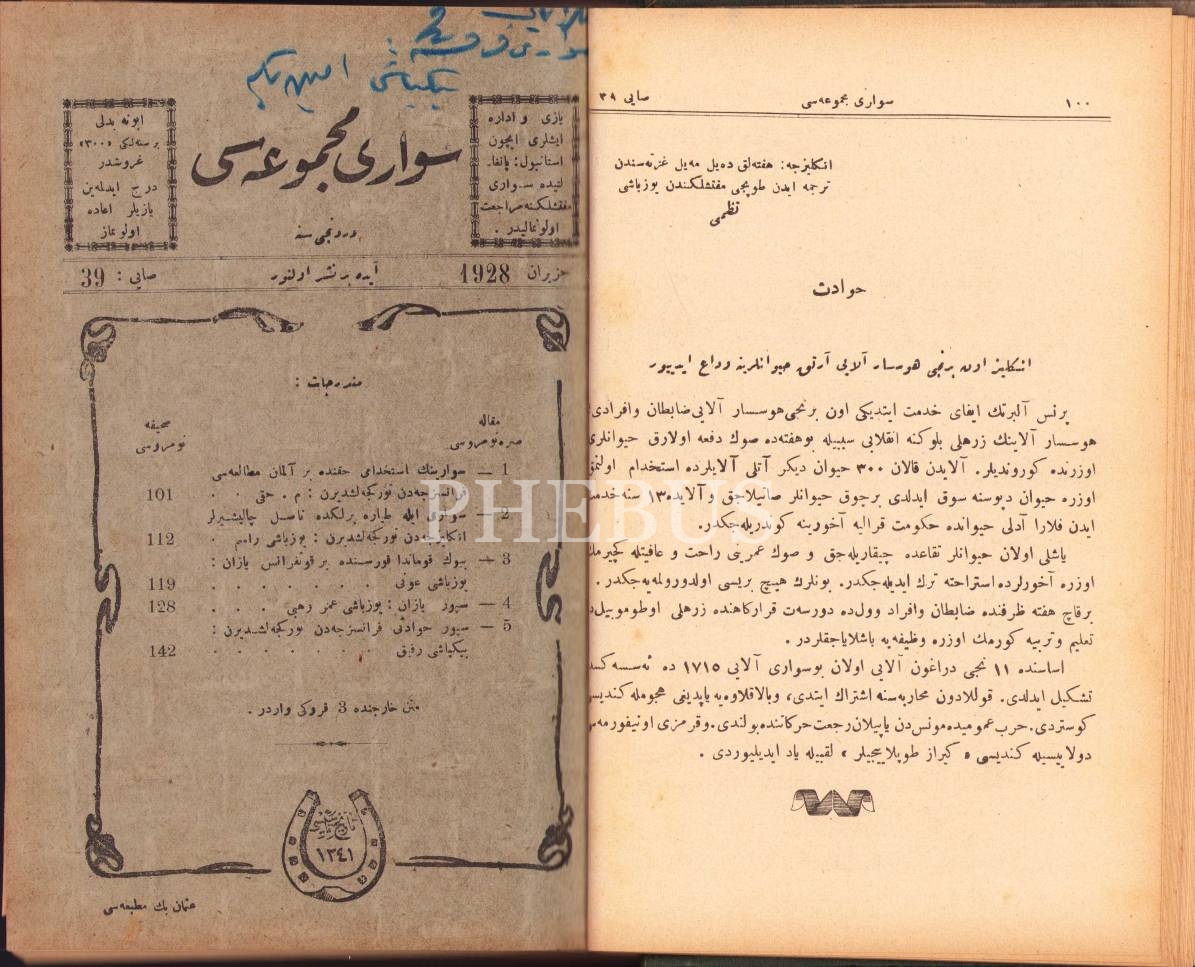 بیكباشی امین بكم
ابونه بدلی
بر سنه‌لكی «۳۰۰»
غروشدر
درج ایدلمه‌ین
یازیلر اعاده
اولونماز
سواری مجموعه‌سی
دردنجی سنه
یازی و اداره
ایشلری ایچون
استانبول: پانغا-
لتیده سواری
مفتشلكنه مراجعت
اولونمالیدر .
حزیران 1928
آیده بر نشر اولنور
صایی : 39
مندرجات :
مقاله
صره نومروسی
صحیفه
نومروسی
1 — سوارینك استخدامی حقنده بر آلمان مطالعه‌سی
فرانسزجه‌دن توركجه‌لشدیرن : م . حقی . . 101
2 — سواری ایله طیاره برلكده ناصل چالیشیرلر
انكلیزجه‌دن توركجه‌لشدیرن : یوزباشی راسم . 112
3 — بیوك قوماندا قورسنده بر قونفرانس یازان :
یوزباشی عونی . . . . . . . 119
4 — سپور یازان : یوزباشی عمر وهبی . . . 128
5 — سپور حوادثی فرانسزجه‌دن توركجه‌لشدیرن :
بیكباشی رفیق . . . . . . . 142
متن خارجنده 3 قروكی واردر .
تاریخ تأسیسی
۱۳٤۱
عثمان بك مطبعه‌سی
۱۰۰
سواری مجموعه‌سی
صایی ۳۹
انكلیزجه: هفته‌لق ده‌یل مه‌یل غزته‌سندن
ترجمه ایدن طوپجی مفتشلكندن یوزباشی
نظمی
حوادث
انكلیز اون برنجی هوسار آلایی آرتق حیوانلرینه وداع ایدییور
پرنس آلبرتك ایفای خدمت ایتدیكی اون برنجی هوسسار آلایی ضابطان وافرادی
هوسسار آلاینك زرهلی بلوكنه انقلابی سببیله بوهفته‌ده صوك دفعه اولارق حیوانلری
اوزرنده كوروندیلر. آلایدن قالان ۳۰۰ حیوان دیكر آتلی آلایلرده استخدام اولنمق
اوزره حیوان دپوسنه سوق ایدلدی برچوق حیوانلر صاتیلاجق و آلایده ۱۳ سنه خدمت
ایدن فلارا آدلی حیوانده حكومت قرالیه آخورینه كوندریله‌جكدر.
یاشلی اولان حیوانلر تقاعده چیقاریله‌جق و صوك عمرینی راحت و عافیتله كچیرمك
اوزره آخورلرده استراحته ترك ایدیله‌جكدر. بونلرك هیچ بریسی اولدورولمه‌یه‌جكدر .
برقاچ هفته ظرفنده ضابطان وافراد وول‌ده دورست قراركاهنده زرهلی اوطوموبیل‌ده
تعلیم و تربیه كورمك اوزره وظیفه‌یه باشلایاجقلردر .
اساسنده ۱۱ نجی دراغون آلایی اولان بوسواری آلایی ۱۷۱۵ ده ئه‌سسه‌كسده
تشكیل ایدلدی. قوللادون محاربه‌سنه اشتراك ایتدی، وبالاقلاوه‌یه یاپدیغی هجومله كندیسنی
كوستردی. حرب عمومیده مونس‌دن یاپیلان رجعت حركاتنده بولندی. وقرمزی اونیفورمه‌سی
دولاییسیله كندیسی « كیراز طوپلاییجیلر » لقبیله یاد ایدیلیوردی .
PHEBUS